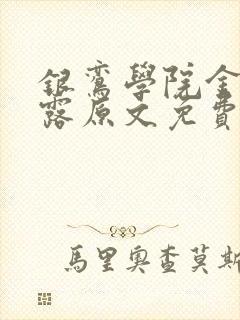 銀鸞學院金
露原文免費
馬里奧查莫斯